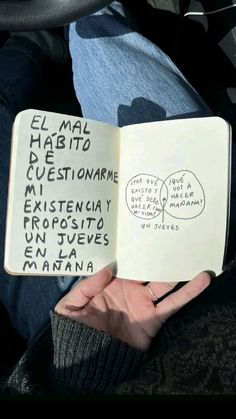 EL MAL
HÁBITO
DE
CUESTIONARME
MI
EXISTENCIA Y
PROPÓSITO
UN JUEVES
EN LA
MAÑANA
¿POR QUÉ
EXISTO Y
QUÉ DEBO
HACER CON
MI VIDA?
¿QUÉ
VOY A
HACER
MAÑANA?
UN JUEVES